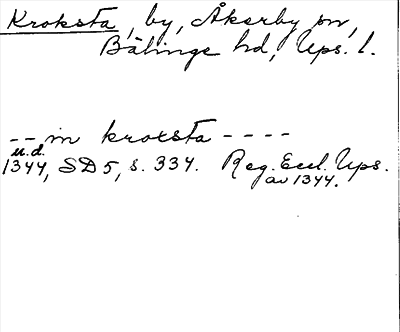 Kroksta, by, Åkerby sn,
Bälinge hd, Ups. l.
-- in krocsta ----
u.d.
1344, SD 5, s. 334. Reg. Eccl. Ups.
av 1344.